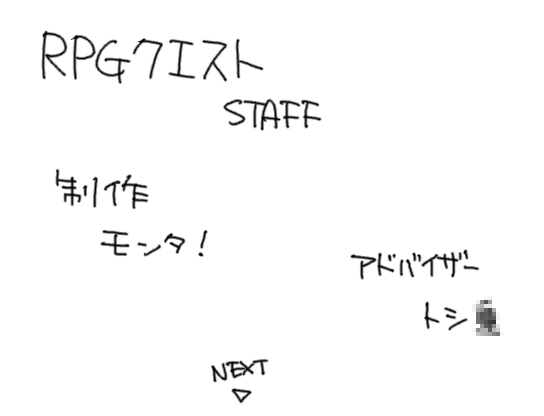 RPGクエスト
STAFF
制作
モンタ!
アドバイザー
トシ
NEXT
▽